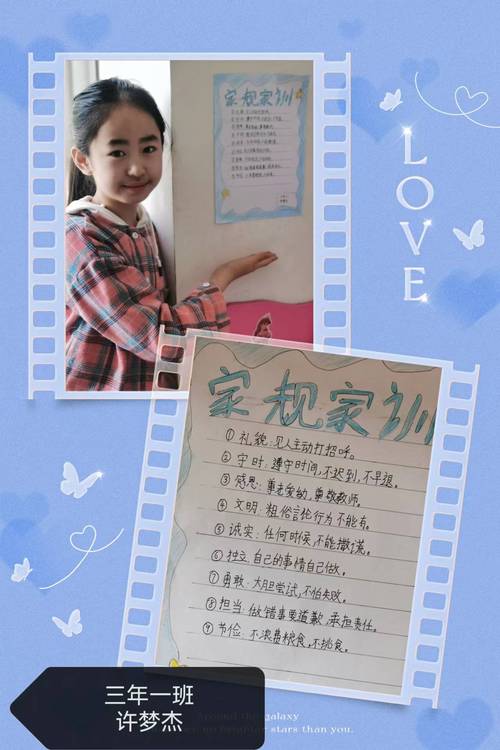 家规家训
LOVE
家规家训
① 礼貌：见人主动打招呼。
② 守时：遵守时间，不迟到，不早退。
③ 感恩：尊老爱幼，尊敬教师。
④ 文明：粗俗言论行为不能有。
⑤ 诚实：任何时候，不能撒谎。
⑥ 独立：自己的事情自己做。
⑦ 勇敢：大胆尝试，不怕失败。
⑧ 担当：做错事要道歉，承担责任。
⑨ 节俭：不浪费粮食，不挑食。
三年一班
许梦杰
the galaxy
brighter stars than you.